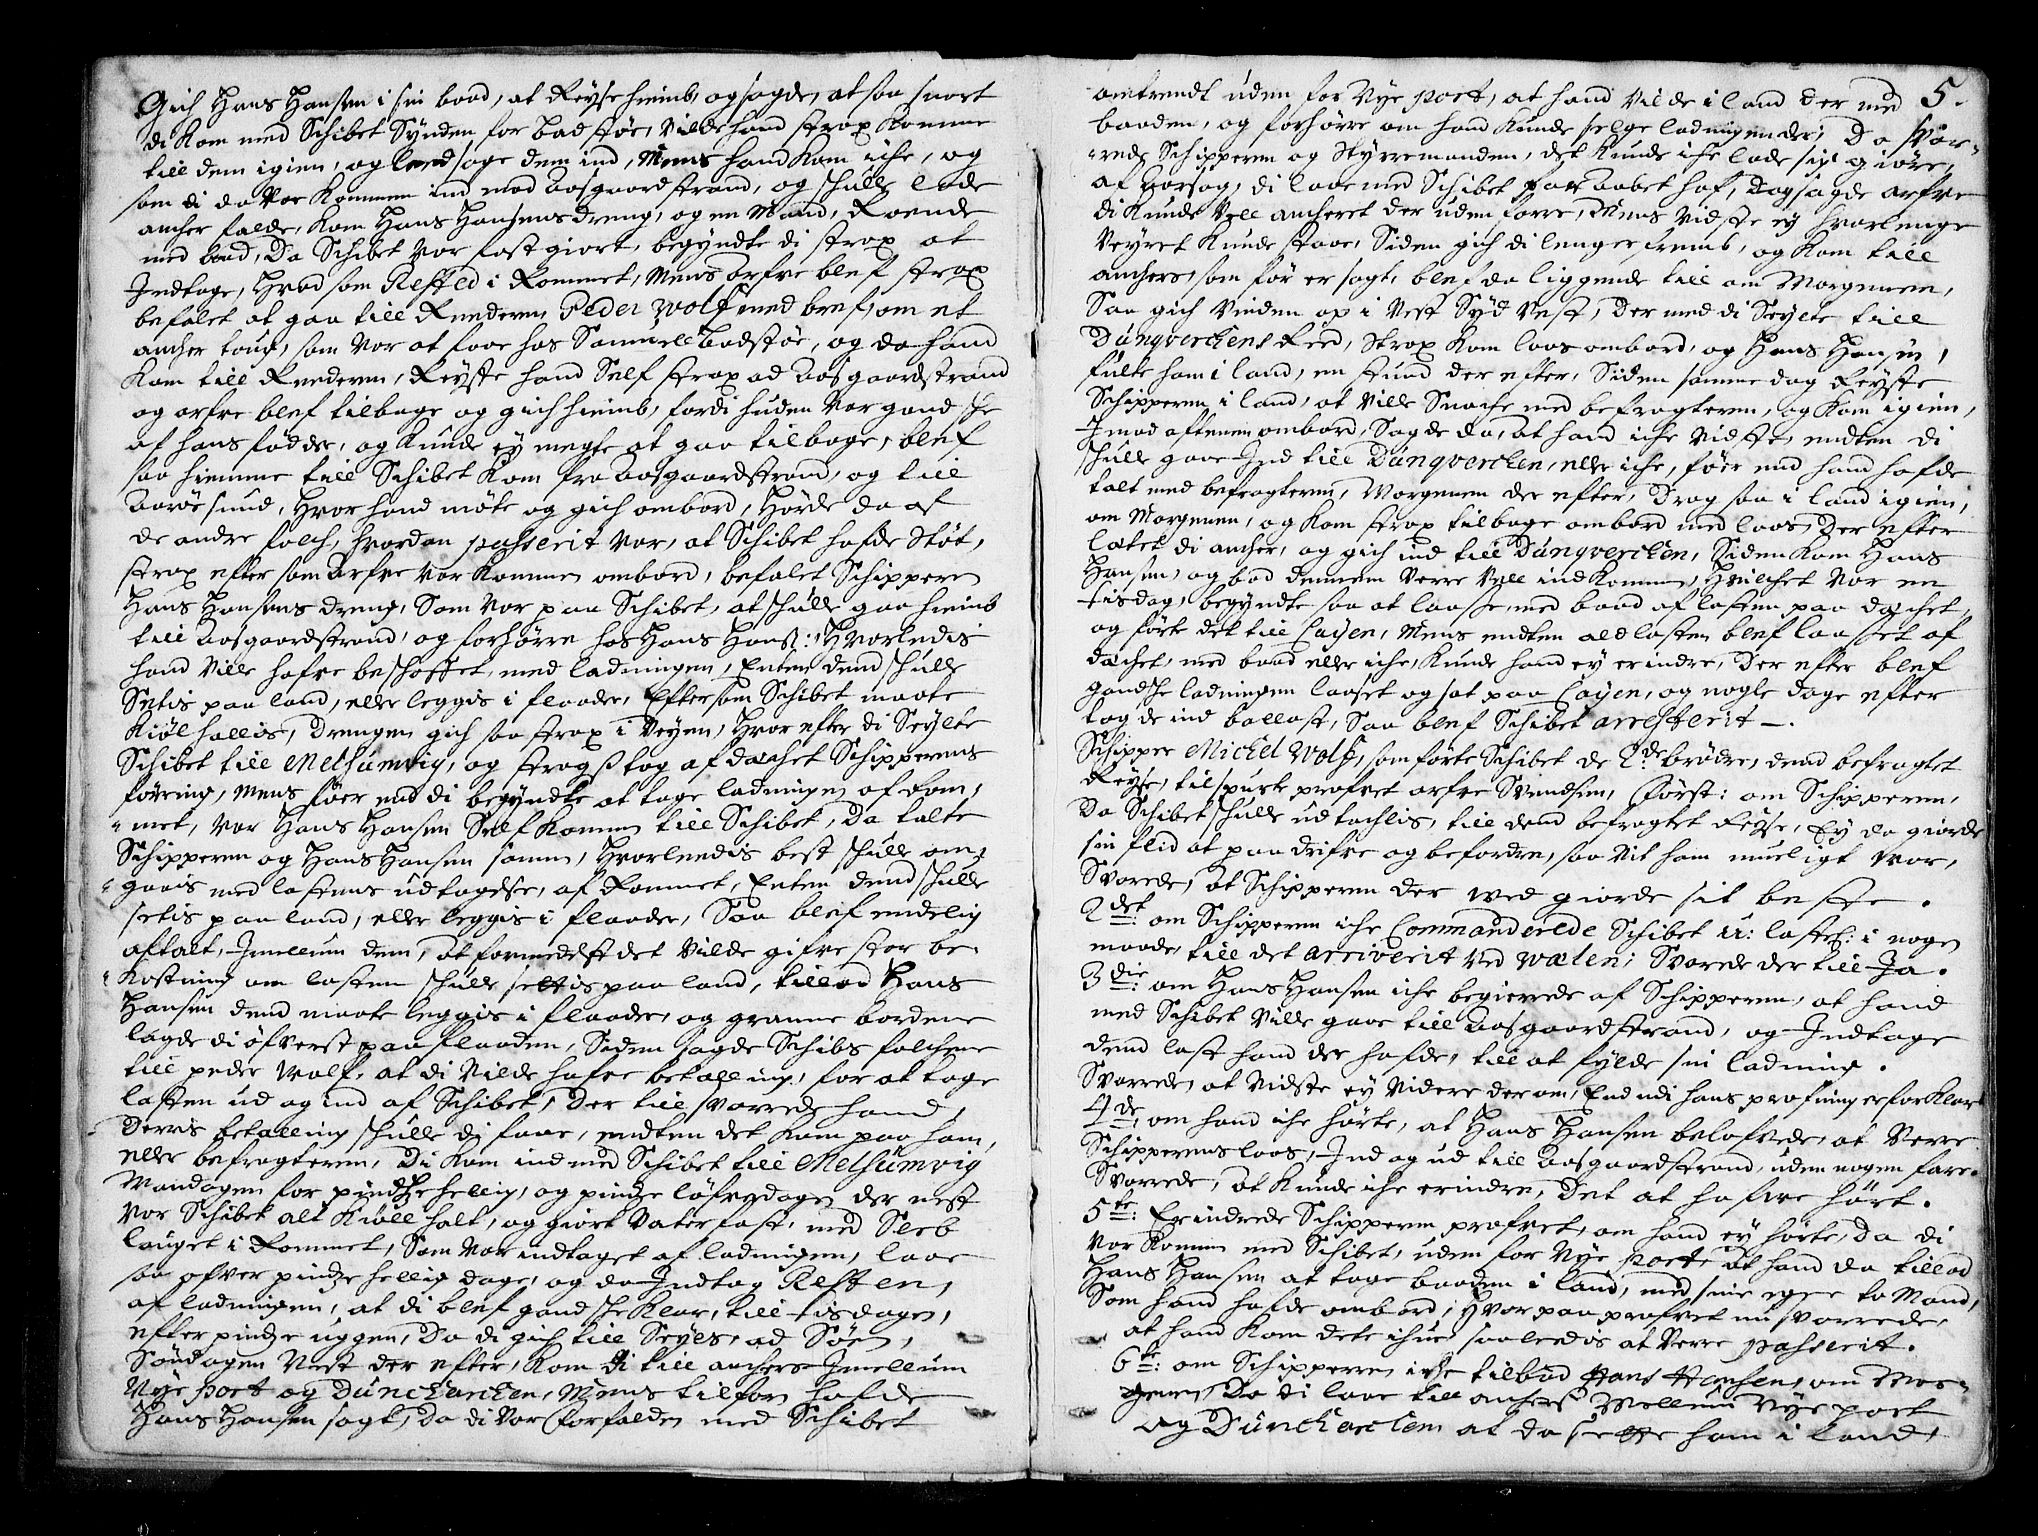 Gich Hans Hansen i sin baad, at Reyse heimb, og sagde, at saa snart
di Kom med Schibet Synden for badstøe, Vilde hand strax Komme
till dem igien, og laadsage dem ind, Mens hand Kom iche, og
som di da Var Kommen ind mod Aasgaardstrand, og schulle lade
ancher falde, Kom Hans Hansens dreng, og en Mand, Roende
med baad, Da Schibet Var fast giort, begyndte di strax at
Indtage, Hvad som Rested i Rommet, Mens Arfve blef strax
befalet at gaa till Rederen, Peder Wolf med bref, om et
ancher toug, som Var at faae hos Samuell Badstøe, og da hand
Kom till Rederen, Reyste hand Self strax ad Aasgaardstrand
og Arfve blef tilbage og gich heimb, fordi huden Var gandsche
af hans fødder, og Kunde ey megte at gaa tilbage, blef
saa hiemme till Schibet Kom fra Aasgaardstrand, og till
Aarøesund, Hvor hand møte og gich ombord, Hørde da af
de andre folch, hvordan passerit Var, at Schibet hafde Støt,
strax efter som Arfve Var Kommen ombord, befalet Schipperen
Hans Hansens dreng, Som Var paa Schibet, at schulle gaa heimb
till Aasgaardstrand, og forhørre hos Hans Hanß: Hvorledis
hand Ville hafve beschaffet, med ladningen, Enten dend schulle
Setis paa land, eller leggis i flaade, Eftersom Schibet maate
Kiølhallis, Drengen gich saa strax i Veyen, Hvor efter di Seylte
Schibet till Melsumvig, og strags tog af dæchet Schipperens
føring, Mens føer end di begyndte at tage ladningen af Rom-
met, Var Hans Hansen Self Kommen till Schibet, Da talte
Schipperen og Hans Hansen samen, Hvorlendis best schulle om-
gaais med lastens udtagelse, af Rommet, Enten dend schulle
setis paa land, eller leggis i flaade, Saa blef endelig
aftalt, Imellum dem, at formedelst det Vilde gifve stor be-
Kostning om lasten schulle settis paa land, tillod Hans
Hansen dend maate leggis i flaade, og granne bordene
lagde di øfverst paa flaaden, Siden sagde Schibs folchene
till peder Wolf, at di Vilde hafve betalling, for at tage
lasten ud og ind af Schibet, Der till Svarrede hand,
Derris betalling schulle di faae, endten det Kom paa ham,
eller befragteren, Di Kom ind med Schibet till Melsumvig
Mandagen for pindtzehellig, og pindze løfverdagen der nest
Var Schibet alt Kiøll halt, og giort Vaterfast, med Sleb
lauget i Rommet, Som Var indtaget af ladningen, laae
saa ofver pindzehellig dage, og da Indtog Resten,
af ladningen, at di blef gandsche Klar, till tisdagen,
efter pindze uggen, Da di gich till Seyls, ad Søen,
Søndagen Nest der efter, Kom di till anchers Imellum
Nye port og Dunckercken, Mens tilforn hafde
Hans Hansen sagt, Da di Var forfalden med Schibet
5.
omtrendt uden for Nye port, at hand Vilde i land der med
baaden, og forhørre om hand Kunde selge ladningen der, Da Svar-
rede Schipperen og Styrremanden, det Kunde iche lade sig giøre,
af Aarsag, di laae med Schibet for aabet haf, Dog sagde Arfve
di Kunde Vell ancheret der uden forre, Mens Vidste ey hvorlenge
Veyret Kunde staae, Siden gich di lenger fremb, og Kom till
anchers, som før er sagt, blef da liggende till om Morgenen,
Saa gich Vinden op i Vest Syd Vest, Der med di Seylte till
Dunqverckens Reed, Strax Kom loos ombord, og Hans Hansen,
fulte ham i land, en stund der efter, Siden samme dag Reyste
Schipperen i land, at Ville Snache med befragteren, og Kom igien,
Imod aftenen ombord, Sagde da, at hand iche Vidste, endten di
schulle gaae Ind till Dunqvercken, elle iche, føer end hand hafde
talt med befragteren, Morgenen der efter, Drog saa i land igien,
om Morgenen, og Kom strax tilbage ombord med loos, Der efter
letet di ancher, og gich ind till Dunqvercken, Siden Kom Hans
Hansen, og bad dennem Verre Vell ind Kommen, Hvilchet Var en
tisdag, begyndte saa at laasse, med baad af lasten paa dæchet,
og førte det till Cayen, Mens endten ald lasten blef laasset af
dæchet, med baad elle iche, Kunde hand ey erindre, Der efter blef
gandsche ladningen laaset og sat paa Cayen, og nogle dage efter
tog de ind ballast, Saa blef Schibet arresterit —.
Schipper Michel Wolf, som førte Schibet de 2de brødre, dend befragtet
Reyse, tilspurte profvet Arfve Svendsen, først: om Schipperen,
Da Schibet schulle udtachlis, till dend befragtet Reyse, Ey da giorde
sin flid at paadrifve og befordre, saa Vit ham mueligt Var,
Svarede, at Schipperen der ved giorde sit beste.
2det: om Schipperen iche Commanderede Schibet u: lastel: i nogen
maade, till det arriverit ved Walen; Svarede der till Ja.
3die: om Hans Hansen iche begierede af Schipperen, at hand
med Schibet Ville gaae till Aasgaardstrand, og Indtage
dend last hand der hafde, till at fylde sin ladning.
Svarrede, at Vidste ey Videre derom, End udi hans profning er forklart
4de, om hand iche hørte, at Hans Hansen belofvede, at Verre
Schipperens loos, Ind og ud till Aasgaardstrand, uden nogen fare.
Svarrede, at Kunde iche erindre, Det at hafve hørt.
5te: Erindrede Schipperen profvet, om hand ey hørte, Da di
Var Kommen med Schibet, uden for Nye port, at hand da tillod
Hans Hansen at tage baaden i land, med sine egne to Mand,
Som hand hafde ombord; Hvor paa profvet nu svarrede,
at hand Kom dete ihue, saaledis at Verre passerit.
6te: om Schipperen iche tilbød Hans Hansen, om Mor-
genen, Da di laae till anchers Mellum Nyeport
og Dunckercken at da sette ham i land,